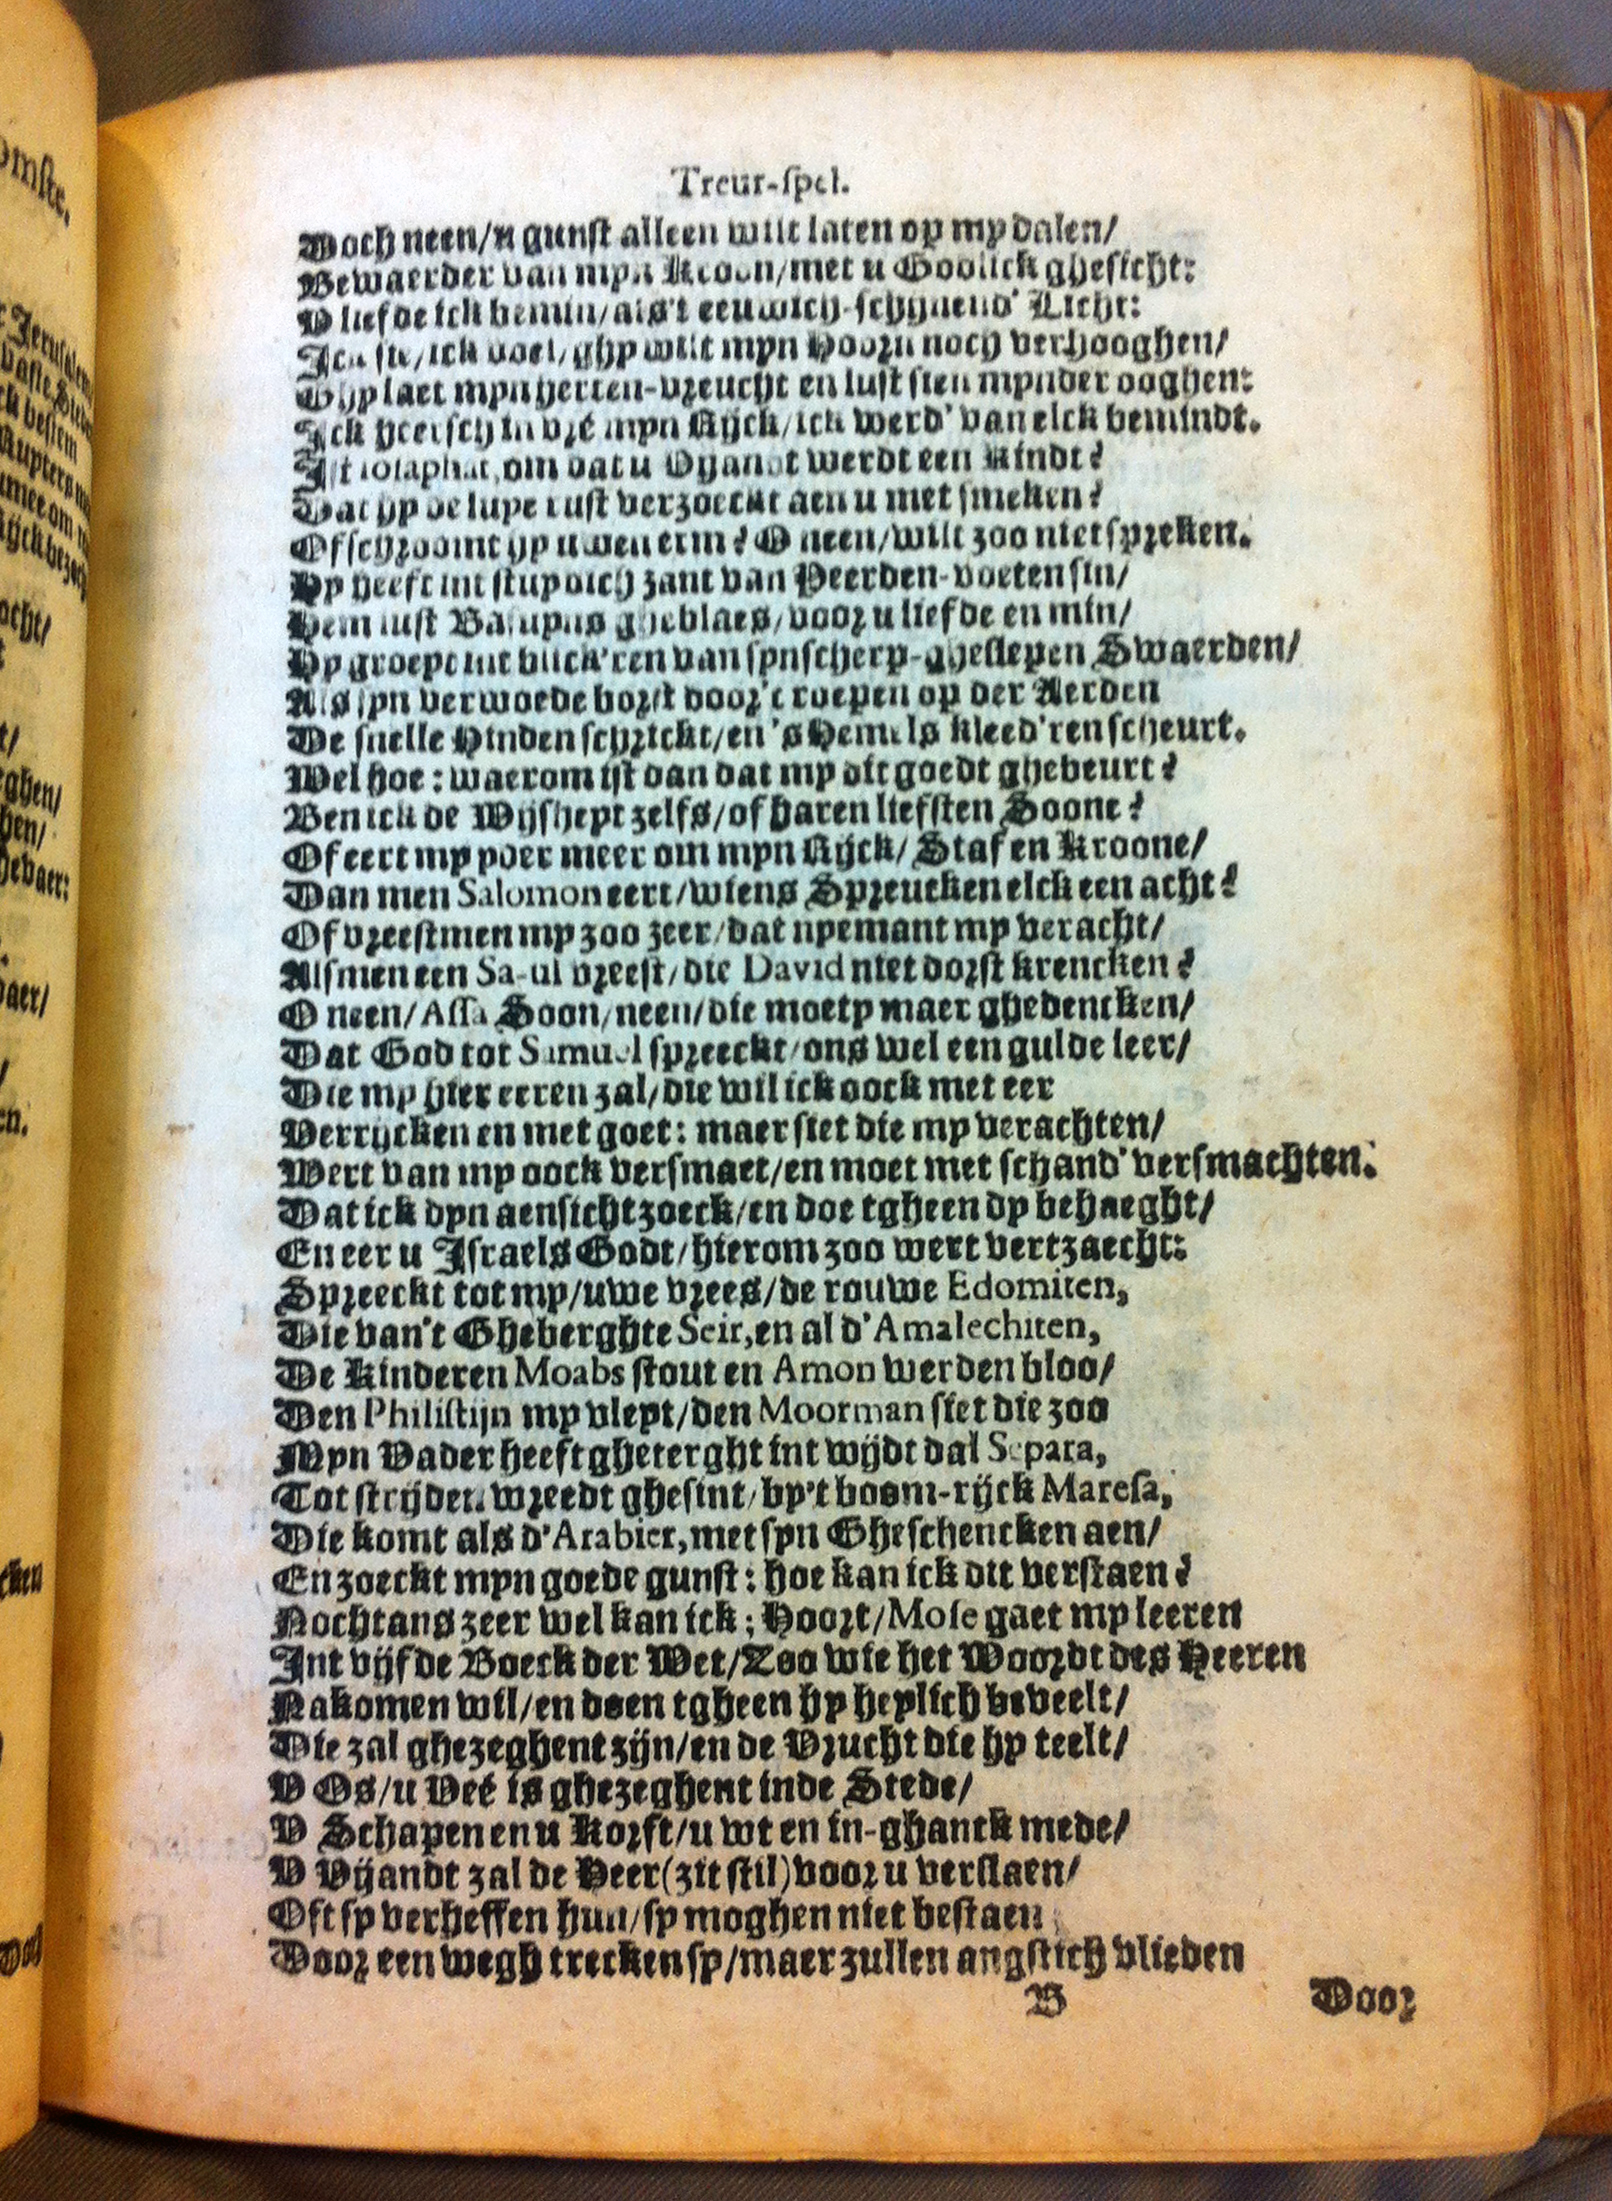 omste.
Jerusalem
vaste Stede
ck bestem
Kupters
ocht/
t/
ghen/
hen/
hevaer:
vaer/
/
en.
cken
Treur-spel.
Doch neen/u gunst alleen wilt laten op my dalen/
Bewaerder van myn Kroon/met u Godlick ghesicht:
V liefde ick bemin/als't eeuwich-schynend' Licht:
Ick sie/ick voel/ghy wilt myn Hoorn noch verhooghen/
Ghy laet myn herten-vreucht en lust sien mynder ooghen:
Ick heersch in vré myn Rijck/ick werd' van elck bemindt.
Ist Iosaphat, om dat u Vyandt werdt een Kindt?
Dat hy de luye rust verzoeckt aen u met smeken?
Of schroomt hy uwen erm? O neen/wilt zoo niet spreken.
Hy heeft int stuyvich zant van Peerden-voeten sin/
Hem lust Basuyns gheblaes/voor u liefde en min/
Hy groeyt int blick'ren van syn scherp-gheslepen Swaerden/
Als syn verwoede borst door't roepen op der Aerden
De snelle Hinden schrickt/en 'sHemels kleed'ren scheurt.
Wel hoe: waerom ist dan dat my dit goedt ghebeurt?
Ben ick de Wijsheyt zelfs/of haren liefsten Soone?
Of eert my yder meer om myn Rijck/Staf en Kroone/
Dan men Salomon eert/wiens Spreucken elck een acht?
Of vreestmen my zoo zeer/dat nyemant my veracht/
Alsmen een Sa-ul vreest/die David niet dorst krencken?
O neen/Assa Soon/neen/die moety maer ghedencken/
Dat God tot Samuel spreeckt/ons wel een gulde leer/
Die my hier eeren zal/die wil ick oock met eer
Verrycken en met goet: maer siet die my verachten/
Wert van my oock versmaet/en moet met schand' versmachten.
Dat ick dyn aensicht zoeck/en doe tgheen dy behaeght/
En eer u Israels Godt/hierom zoo wert vertzaecht:
Spreeckt tot my/uwe vrees/de rouwe Edomiten,
Die van't Gheberghte Seir, en al d'Amalechiten,
De kinderen Moabs stout en Amon werden bloo/
Den Philistijn my vleyt/den Moorman siet die zoo
Myn Vader heeft gheterght int wijdt dal Separa,
Tot strijden wreedt ghesint/by't boom-rijck Maresa,
Die komt als d'Arabier, met syn Gheschencken aen/
En zoeckt myn goede gunst: hoe kan ick dit verstaen?
Nochtans zeer wel kan ick; Hoort/Mose gaet my leeren
Int vijfde Boeck der Wet/Zoo wie het Woordt des Heeren
Nakomen wil/en doen tgheen hy heylich beveelt/
Die zal ghezeghent zijn/en de Vrucht die hy teelt/
V Os/u Veé is ghezeghent inde Stede/
V Schapen en u Korft/u wt en in-ghanck mede/
V Vijandt zal de Heer(zit stil)voor u verslaen/
Oft sy verheffen hun/sy moghen niet bestaen
Door een wegh trecken sy/maer zullen angstich vlieden
B
Door